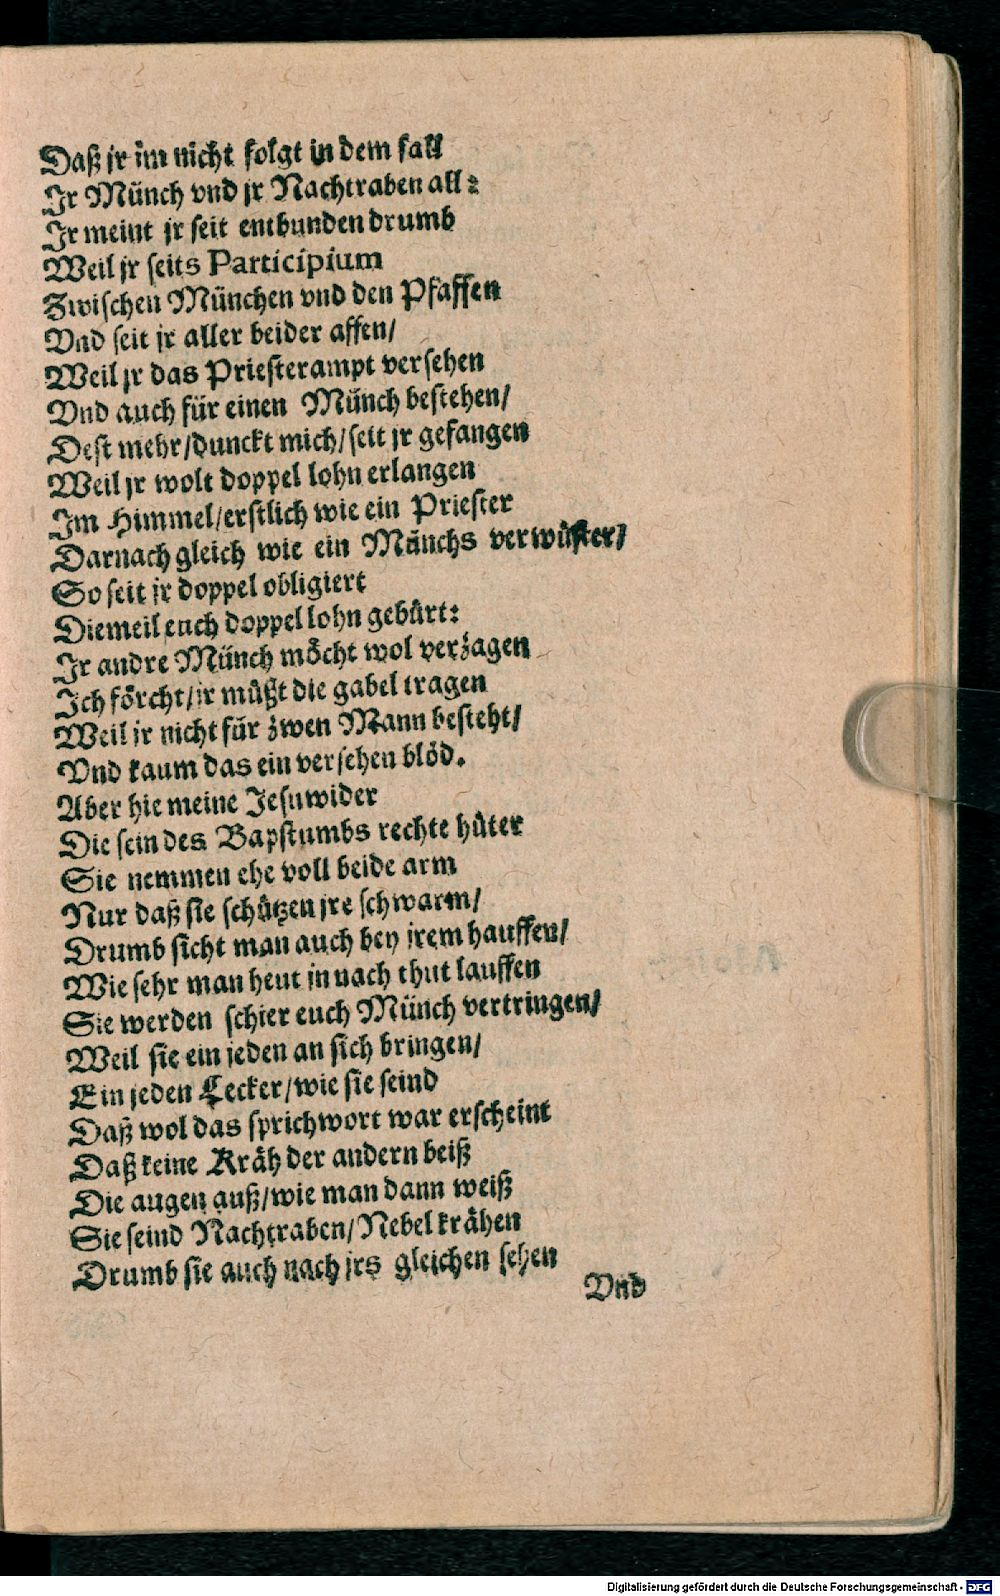 Daß jr im nicht folgt in dem fall
Jr Münch vnd jr Nachtraben all:
Jr meint jr seit entbunden drumb
Weil jr seits Participium
Zwischen München vnd den Pfaffen
Vnd seit jr aller beider affen/
Weil jr das Priesterampt versehen
Vnd auch für einen Münch bestehen/
Dest mehr/dunckt mich/seit jr gefangen
Weil jr wolt doppel lohn erlangen
Im Himmel/erstlich wie ein Priester
Darnach gleich wie ein Münchs verwüster/
So seit jr doppel obligiert
Diemeil euch doppel lohn gebürt:
Jr andre Münch möcht wol verzagen
Ich förcht/ir müßt die gabel tragen
Weil ir nicht für zwen Mann besteht/
Vnd kaum das ein versehen blöd.
Aber hie meine Jesuwider
Die sein des Bapstumbs rechte hüter
Sie nemmen ehe voll beide arm
Nur daß sie schützen jre schwarm/
Drumb sicht man auch bey jrem hauffen/
Wie sehr man heut in nach thut lauffen
Sie werden schier euch Münch vertringen/
Weil sie ein jeden an sich bringen/
Ein jeden Lecker/wie sie seind
Daß wol das sprichwort war erscheint
Daß keine Kräh der andern beiß
Die augen auß/wie man dann weiß
Sie seind Nachtraben/Nebelkrähen
Drumb sie auch nach jrs gleichen sehen
Vnd
Digitalisierung gefördert durch die Deutsche Forschungsgemeinschaft - DFG